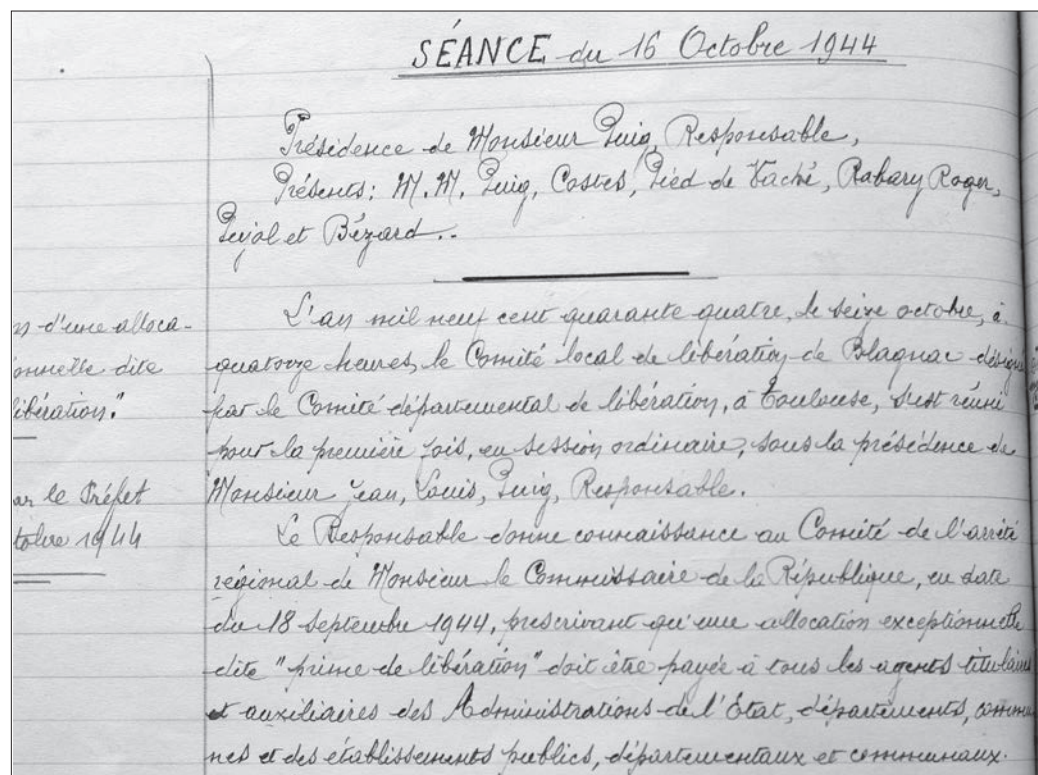 SÉANCE du 16 Octobre 1944
Présidence de Monsieur Puig, Responsable,
Présents: M.M. Puig, Castes, Pied de Vaché, Rabary Roger,
Pujol et Bézard..
L'an mil neuf cent quarante quatre, le seize octobre, à
quatorze heures, le Comité local de libération de Blagnac désign
par le Comité départemental de libération, à Toulouse, s'est réuni
pour la première fois, en session ordinaire, sous la présidence de
Monsieur Jean, Louis, Puig, Responsable.
Le Responsable donne connaissance au Comité de l'arrêté
régional de Monsieur le Commissaire de la République, en date
du 18 Septembre 1944, prescrivant qu'une allocation exceptionnelle
dite "prime de libération" doit être payée à tous les agents titulaires
et auxiliaires des Administrations de l'Etat, départements, commu-
nes et des établissements publics, départementaux et communaux.
d'une alloca-
onnelle dite
libération."
ar le Préfet
tobre 1944